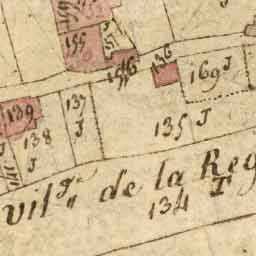 155
156
136
169 J
139
137
J
138
J
135 J
vilg.e de la Reg
134 T